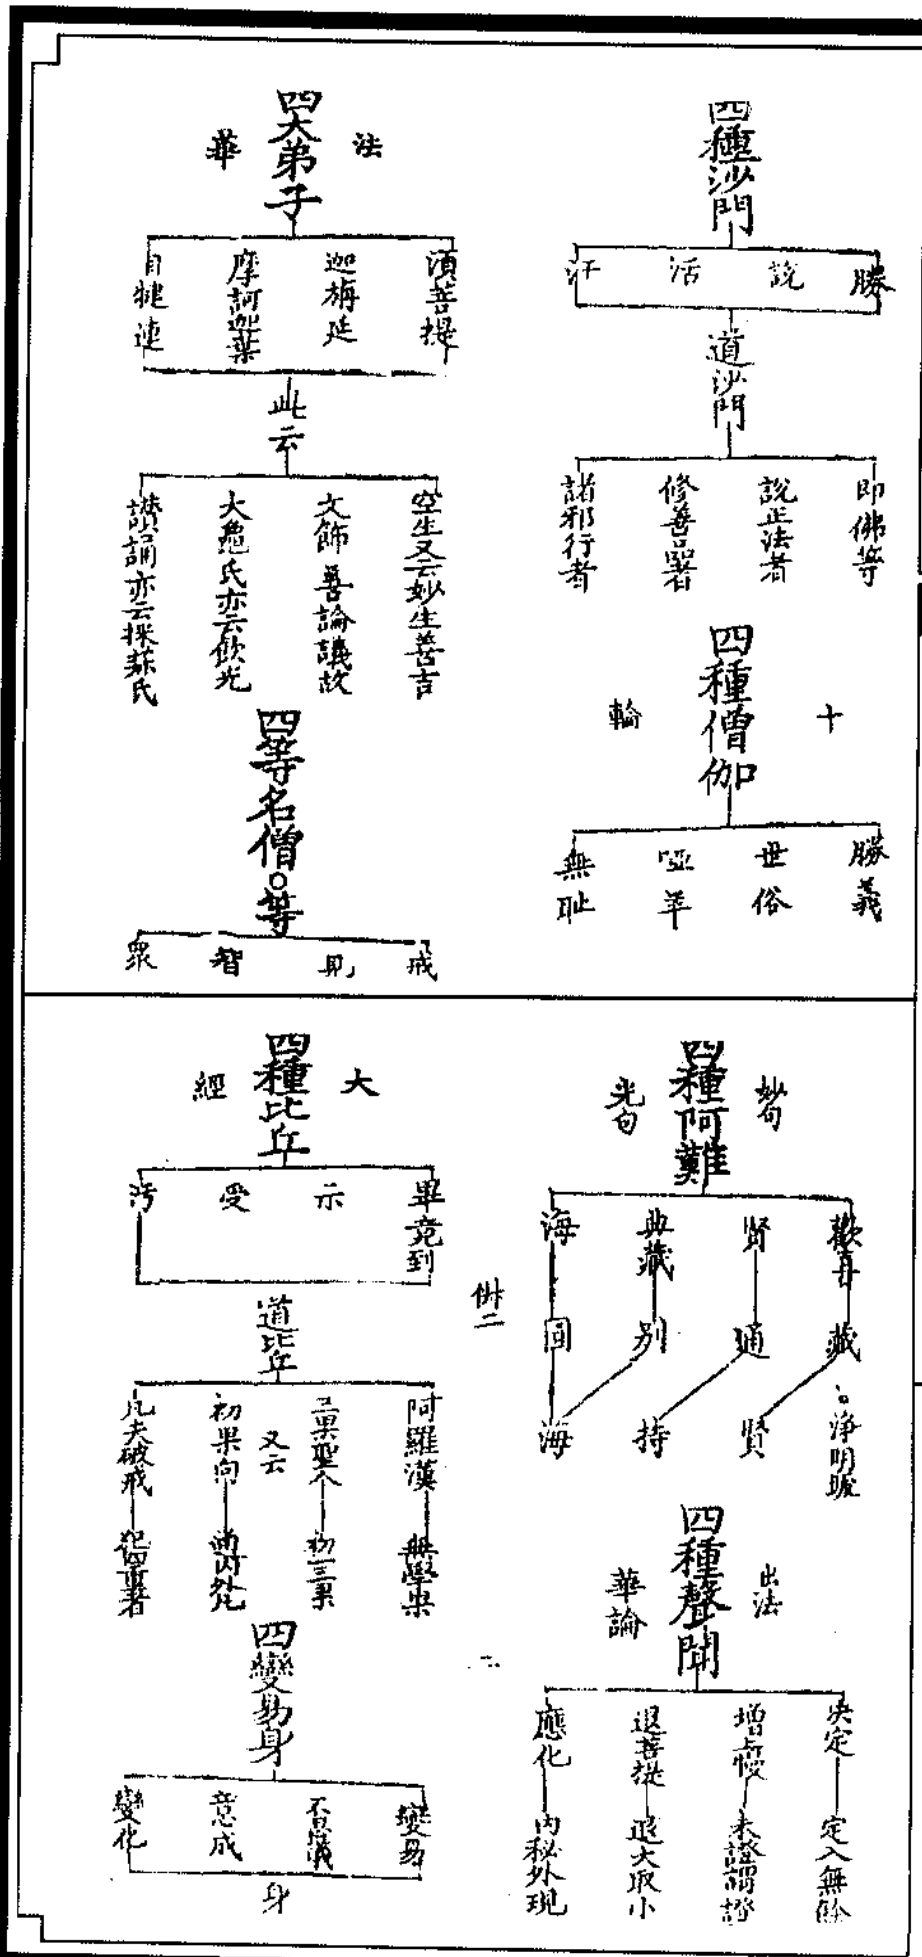 四種沙門
勝
說
活
汙
道沙門
即佛等
說正法者
修善品者
諸邪行者
四種僧伽
十
輪
勝義
世俗
啞羊
無耻
四大弟子
法
華
須菩提
迦旃延
摩訶迦葉
目犍連
此云
空生又云妙生善吉
文飾善論議故
大龜氏亦云飲光
讚誦亦云採菽氏
四等名僧。等
戒
見
智
眾
四種阿難
妙句
光句
歡喜
賢
典藏
海
藏
通
別
圓
賢
持
海
。淨明疏
四種聲聞
出法
華論
決定
增上慢
退菩提
應化
定入無餘
未證謂證
退大取小
內秘外現
併二
四種比丘
大
經
畢竟到
示
受
污
道比丘
阿羅漢
三果聖人
又云
初果向
凡夫破戒
無學果
初二三果
犯重者
四變易身
變易
不思議
意成
變化
身